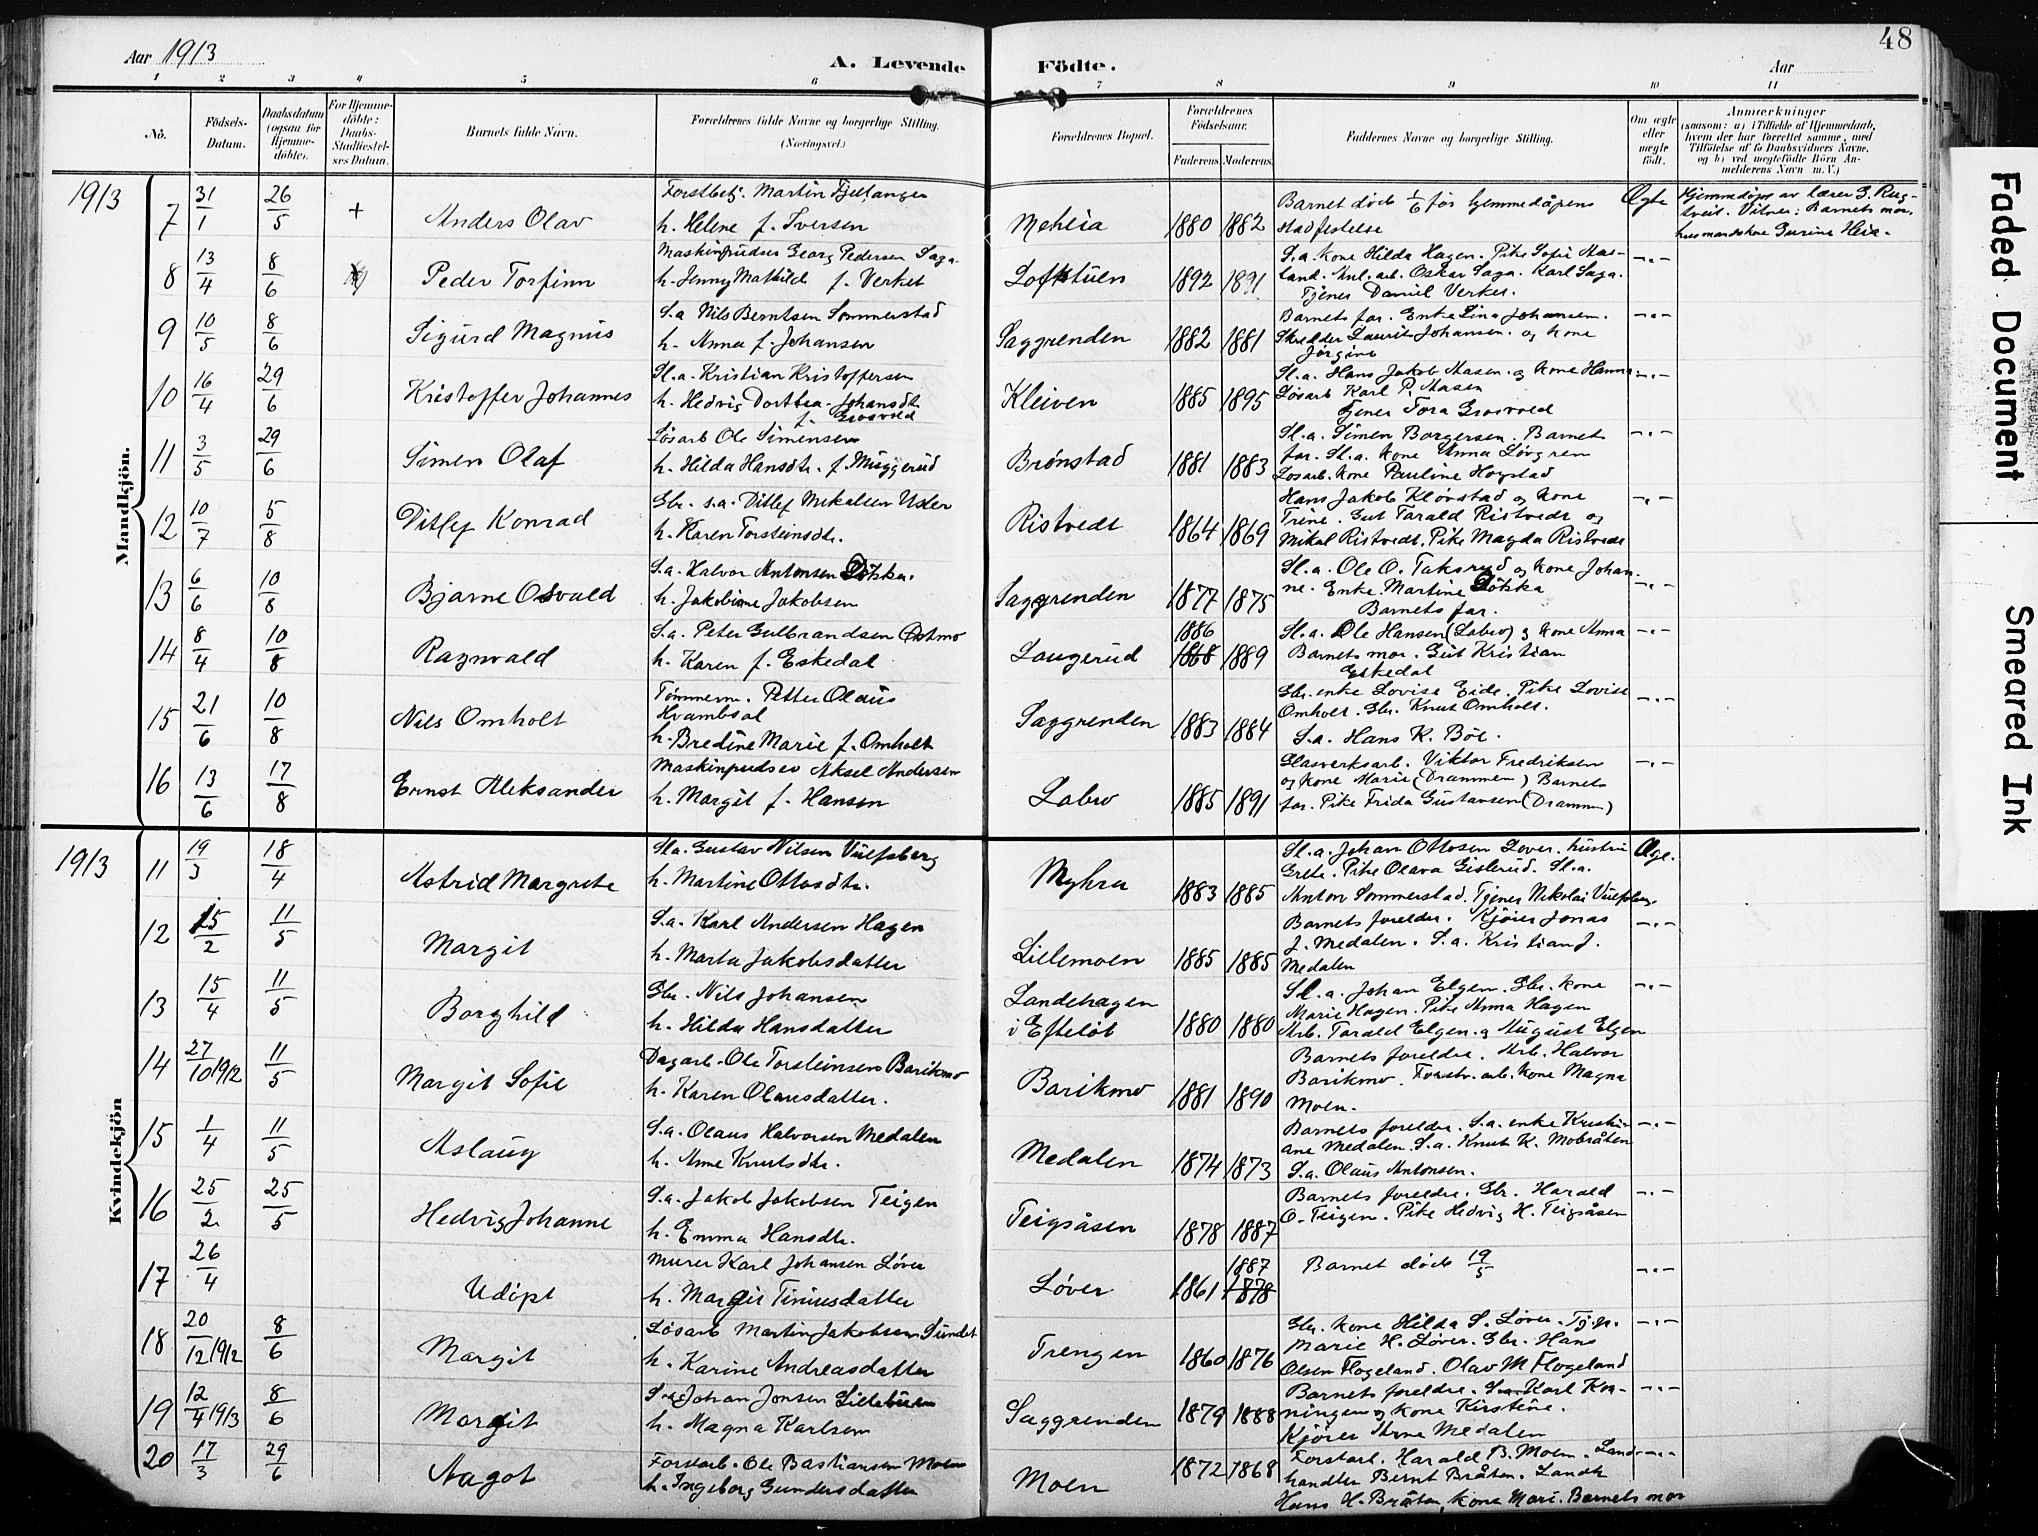 48
Aar 1913
A. Levende Födte.
Aar
1 2 3 4 5 6 7 8 9 10 11
No.
Födsels-Datum.
Daabsdatum (ogsaa for Hjemmedöbte).
For Hjemmedöbte: Daabs-Stadfæstelses Datum.
Barnets fulde Navn.
Forældrenes fulde Navne og borgerlige Stilling.
(Næringsvei.)
Forældrenes Bopæl.
Forældrenes Födselsaar.
Faderens. Moderens.
Faddernes Navne og borgerlige Stilling.
Om ægte eller uægte födt.
Anmærkninger
(saasom: a) i Tilfælde af Hjemmedaab, hvem der har forrettet samme, med Tilföielse af to Daabsvidners Navne, og b) ved uægtefödte Börn Anmelderens Navn m. V.)
Mandkjön.
1913
7 31/1 26/5 + Anders Olav
Forstbetj. Martin Fjellanger
h. Helene f. Iversen
Meheia 1880 1882
Barnet döde 1/6 før hjemmedåpens
stadfestelse
Ægte
Hjemmedöpt av lærer G. Rug-
tveit. Vitner: Barnets mor,
husmandskone Gurine Heia.
8 13/4 8/6 Peder Torfinn
Maskinpudser Georg Pedersen Saga
h. Jenny Mathilde f. Verket
Loftstuen 1892 1891
S.a. kone Hilda Hagen. Pike Sofie Aas-
land. Anl. arb. Oskar Saga. Karl Saga.
Tjener Daniel Verket.
9 10/5 8/6 Sigurd Magnus
S.a. Nils Berntsen Sommerstad
h. Anna f. Johansen
Saggrenden 1882 1881
Barnets far. Enke Lina Johansen.
Skredder Laurits Johansen. og kone
Jørgine
10 16/4 29/6 Kristoffer Johannes
Sl.a. Kristian Kristoffersen
h. Hedvig Dorthea Johansdtr.
f. Grosvold
Kleiven 1885 1895
Sl.a. Hans Jakob Aasen og kone Hanna.
Løsarb. Karl P. Aasen
Tjener Tora Grosvold
11 3/5 29/6 Simen Olaf
Løsarb. Ole Simensen
h. Hilda Hansdtr. f. Muggerud
Brønstad 1881 1883
Sl.a. Simen Borgersen. Barnets
far. Sl.a. kone Anna Løvgren
Løsarb. kone Pauline Hogstad
12 10/7 5/8 Ditlef Konrad
Gbr. s.a. Ditlef Mikalsen Uster
h. Karen Torsteinsdtr.
Ristvedt 1864 1869
Hans Jakob Klovstad og kone
Trine. Gut Tarald Ristvedt og
Mikal Ristvedt. Pike Magda Ristvedt
13 6/6 10/8 Bjarne Osvald
S.a. Halvor Antonsen
h. Jakobine Jakobsen
Saggrenden 1877 1875
Sl.a. Ole O. Taksrud og kone Johan-
ne. Enke Martine
Barnets far.
14 8/4 10/8 Ragnvald
S.a. Peter Gulbrandsen Østmo
h. Karen f. Eskedal
Laugerud 1886 1868 1889
Sl.a. Ole Hansen (Labro) og kone Anna
Barnets mor. Gut Kristian
Eskedal
15 21/6 10/8 Nils Omholt
Tømmerm. Petter Olaus
Hvambsal
h. Bredine Marie f. Omholt
Saggrenden 1883 1884
Gbr. enke Lovise Eide. Pike Lovise
Omholt. Gbr. Knut Omholt.
S.a. Hans K. Böe.
16 13/6 17/8 Ernst Aleksander
Maskinpudser Aksel Andersen
h. Margit f. Hansen
Labro 1885 1891
Glasverksarb. Viktor Fredriksen
og kone Marie (Drammen) Barnets
far. Pike Frida Gustavsen (Drammen)
Kvindekjön
1913
11 19/3 18/4 Astrid Margrete
Sl.a. Gustav Nilsen Vulfsberg
h. Martine Ottosdtr.
Myhra 1883 1885
Sl.a. Johan Ottosen Lover. hustru
Grete. Pike Olava Gislerud. Sl.a.
Anton Sommerstad. Tjener Nikolai Vulfsberg.
Ægte.
12 15/2 11/5 Margit
S.a. Karl Andersen Hagen
h. Marta Jakobsdatter
Lillemoen 1885 1885
Barnets foreldre. Kjörer Jonas
J. Medalen. S.a. Kristian J.
Medalen
13 15/4 11/5 Borghild
Gbr. Nils Johansen
h. Hilda Hansdatter
Landehagen
i Efteløt 1880 1880
Sl.a. Johan Elgen. Gbr. kone
Marie Hagen. Pike Anna Hagen
Arb. Tarald Elgen. og August Elgen
14 27/10 1912 11/5 Margit Sofie
Dagarb. Ole Torsteinsen Barikmo
h. Karen Olausdatter.
Barikmo 1881 1890
Barnets foreldre. Arb. Halvor
Barikmo. Forstv. arb. kone Magna
Moen.
15 1/4 11/5 Aslaug
S.a. Olaus Halvorsen Medalen
h. Anne Knutsdtr.
Medalen 1874 1873
Barnets foreldre. S.a. enke Kristi-
ane Medalen. S.a. Knut K. Mobråten
S.a. Olaus Antonsen.
16 25/2 25/5 Hedvig Johanne
S.a. Jakob Jakobsen Teigen
h. Emma Hansdtr.
Teigsåsen 1878 1887
Barnets foreldre. Gbr. Harald
O. Teigen. Pike Hedvig H. Teigsåsen
17 26/4 Udöpt
Murer Karl Johansen Löver
h. Margit Tiniusdatter
Löver 1861 1887 1878
Barnet döde 19/5
18 20/12 1912 8/6 Margit
Løsarb. Martin Jakobsen Sundet
h. Karine Andreasdatter
Trengen 1860 1876
Gbr. kone Hilda S. Löver. Tjp.
Marie H. Löver. Gbr. Hans
Olsen Flogeland. Olav M Flogeland
19 12/4 1913 8/6 Margit
S.a. Johan Jonsen Lillebuen
h. Magna Karlsen
Saggrenden 1879 1888
Barnets foreldre. S.a. Karl Kon-
ningen og kone Kirstine.
Kjörer Arne Medalen
20 17/3 29/6 Aagot
Forstarb. Ole Bastiansen Moen
h. Ingeborg Gundersdatter
Moen 1872 1868
Forstarb. Harald B. Moen. Land-
handler Bernt Bråten. Landh.
Hans H. Bråten, kone Mari. Barnets mor
Faded Document
Smeared Ink